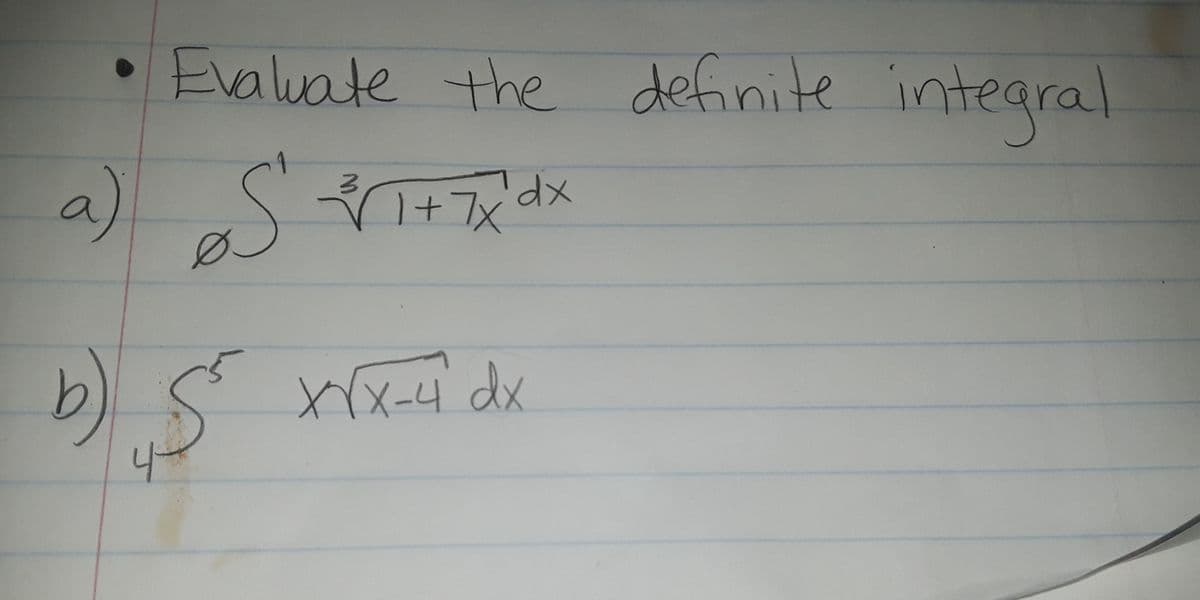 • Evaluate the definite integral
a) ∫₀¹ ∛(1+7x) dx
b) ∫₄⁵ x√(x-4) dx